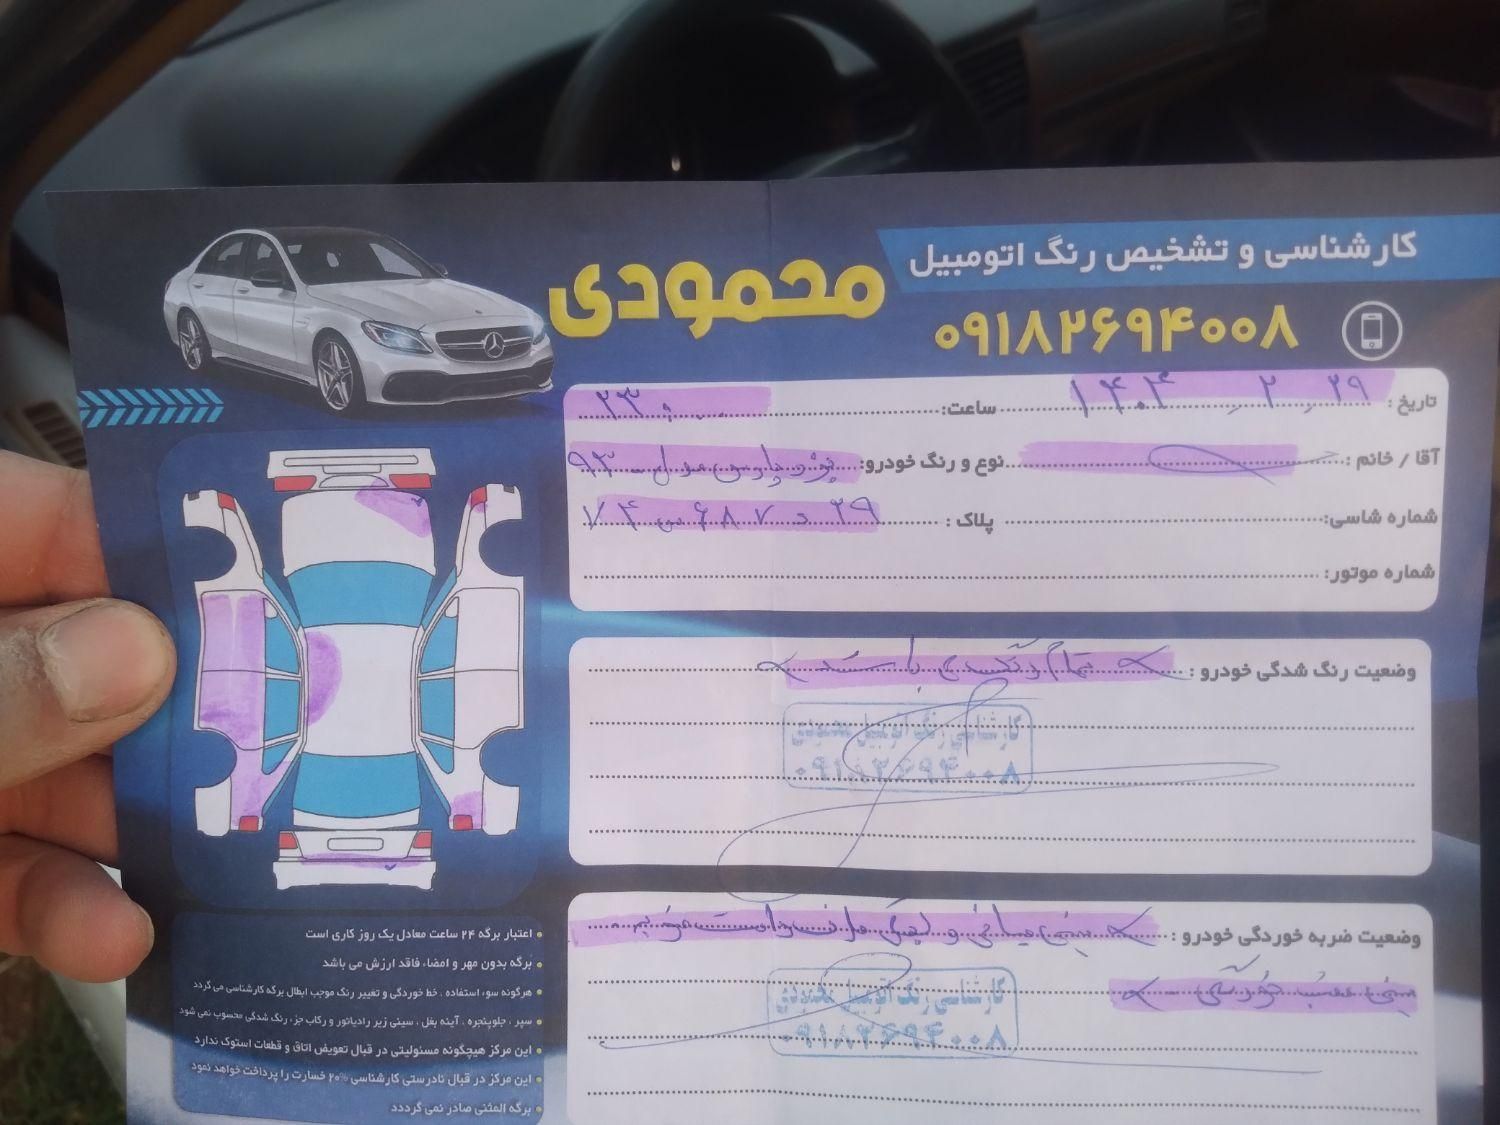 کارشناسی و تشخیص رنگ اتومبیل
محمودی
۰۹۱۸۲۶۹۴۰۰۸
تاریخ : ۱۴۰۴ / ۲ / ۲۹ ساعت: ۲۳:۰۰
آقا / خانم : نوع و رنگ خودرو: پژو پارس مدل ۹۳
شماره شاسی: پلاک : ۲۹ د ۶۸۷ س ۷۴
شماره موتور:
وضعیت رنگ شدگی خودرو : تمام رنگبندی با
کارشناسی رنگ اتومبیل محمودی
۰۹۱۸۲۶۹۴۰۰۸
وضعیت ضربه خوردگی خودرو : سینی میانی و
سینی عقب خوردگی
کارشناسی رنگ اتومبیل محمودی
۰۹۱۸۲۶۹۴۰۰۸
اعتبار برگه ۲۴ ساعت معادل یک روز کاری است
برگه بدون مهر و امضاء فاقد ارزش می باشد
هرگونه سوء استفاده ، خط خوردگی و تغییر رنگ موجب ابطال برگه کارشناسی می گردد
سپر ، جلوپنجره ، آینه بغل ، سینی زیر رادیاتور و رکاب جزء رنگ شدگی محسوب نمی شود
این مرکز هیچگونه مسئولیتی در قبال تعویض اتاق و قطعات استوک ندارد
این مرکز در قبال نادرستی کارشناسی ۲۰% خسارت را پرداخت خواهد نمود
برگه المثنی صادر نمی گرددد